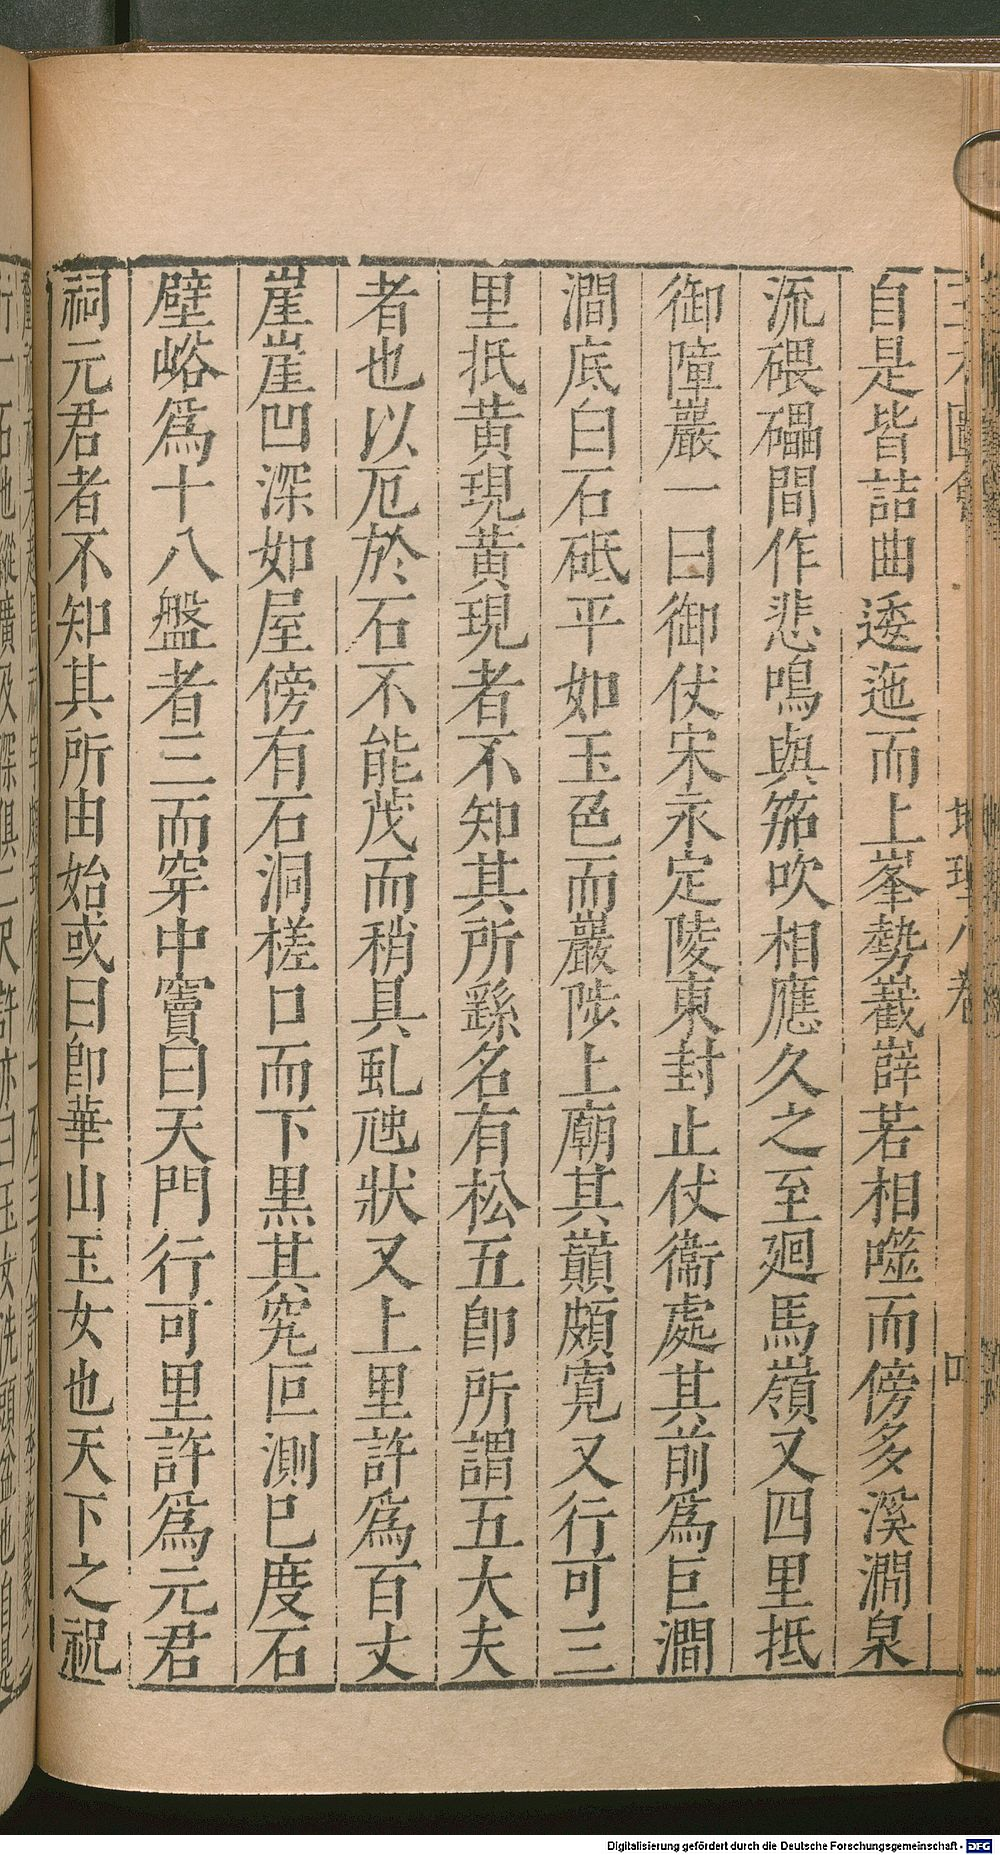 自是皆詰曲逶迤而上峯勢巀嶭若相噬而傍多溪澗泉
流碨礧間作悲鳴與笳吹相應久之至廻馬嶺又四里抵
御障巖一曰御仗宋永定陵東封止仗衞處其前爲巨澗
澗底白石砥平如玉色而巖陟上廟其巔頗寬又行可三
里抵黃現黃現者不知其所繇名有松五卽所謂五大夫
者也以厄於石不能茂而稍具虬虺狀又上里許爲百丈
崖崖凹深如屋傍有石洞槎口而下黑其究叵測已度石
壁峪爲十八盤者三而穿中竇曰天門行可里許爲元君
祠元君者不知其所由始或曰卽華山玉女也天下之祝
Digitalisierung gefördert durch die Deutsche Forschungsgemeinschaft - DFG